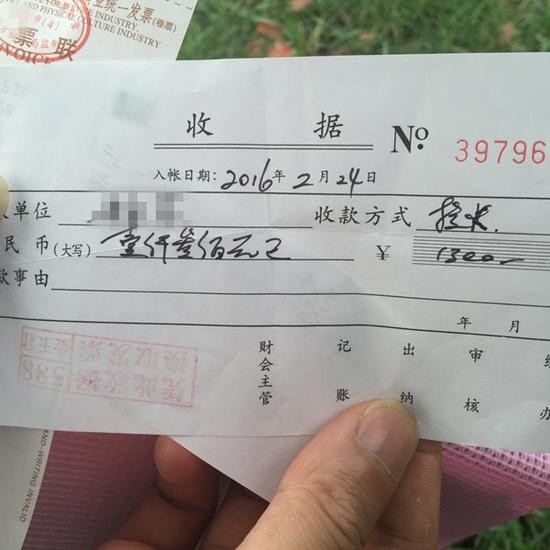 业统一发票(卷票)
INDUSTRY
AND PHYSICAL CULTURE INDUSTRY
票 联
INVOICE
收 据 No. 39796
入帐日期: 2016年 2月 24日
单位 收款方式
民 币(大写) 壹仟叁佰元正 ¥ 1300-
款事由
年 月
财会主管 记账 出纳 审核
凭此收据
换取发票
588
AND-WRITING INVALID